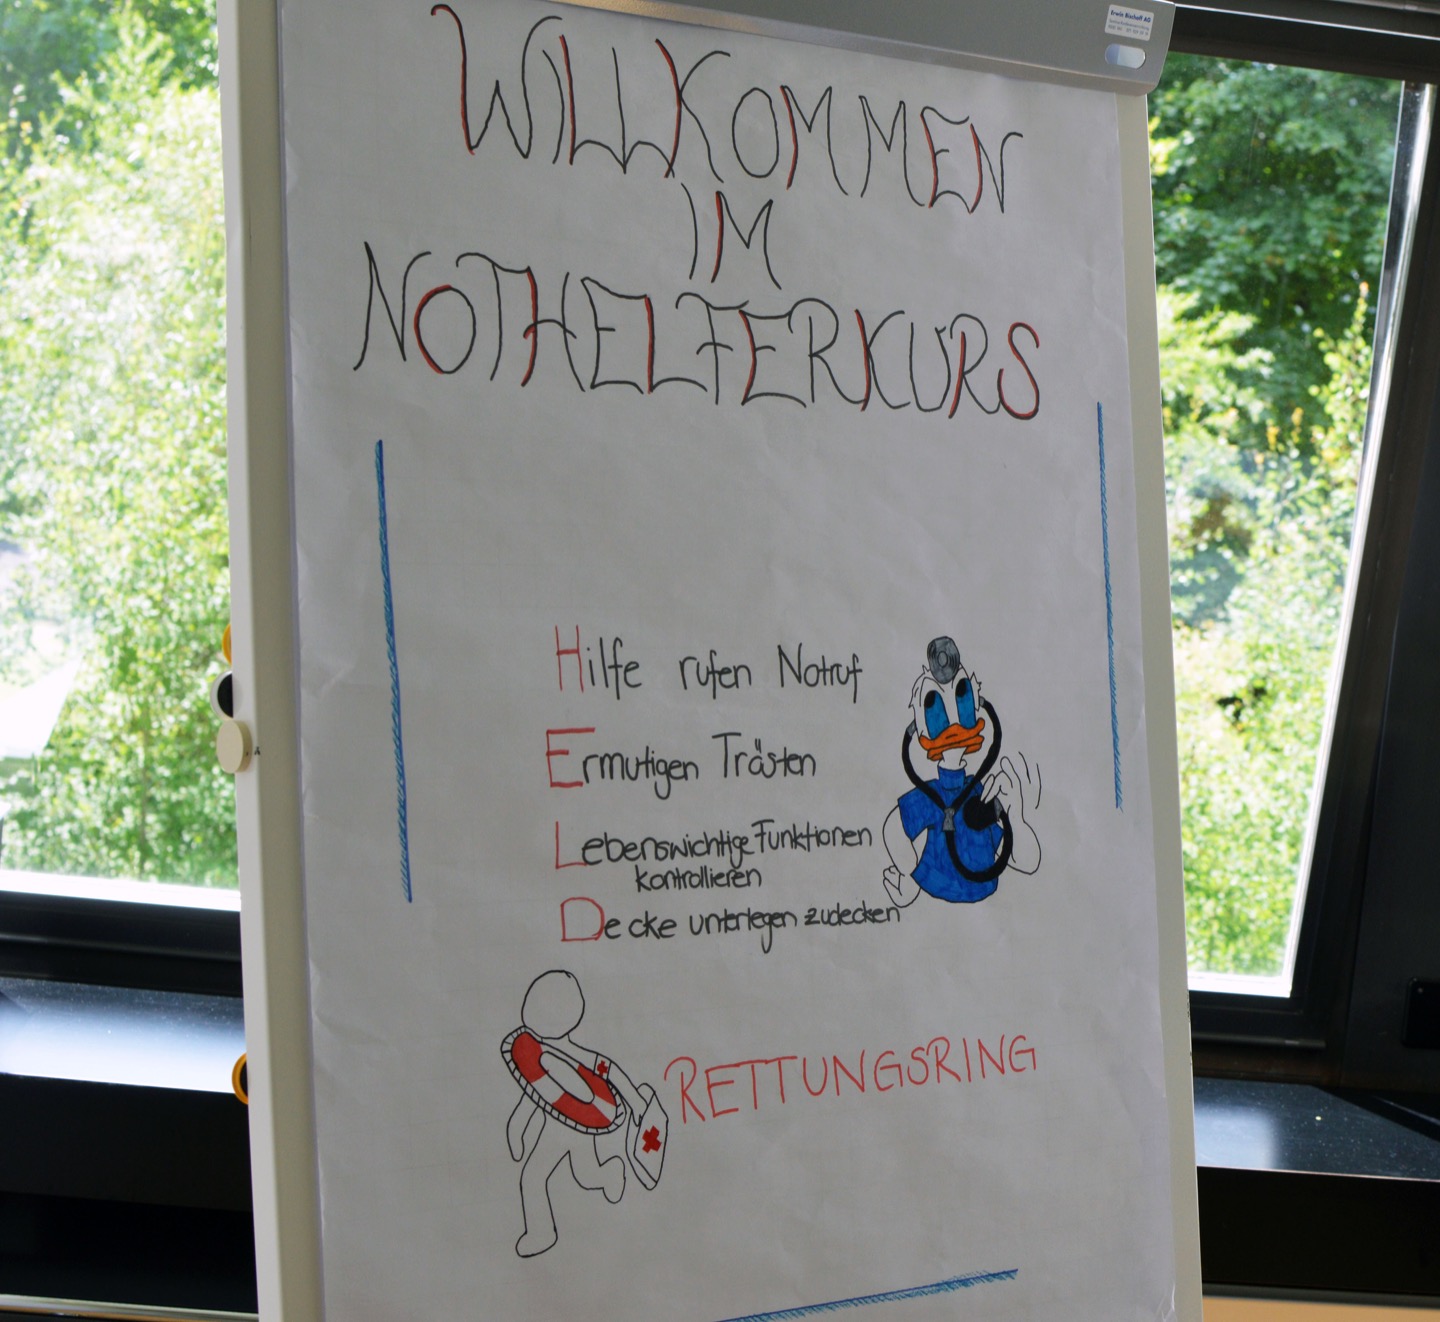 Erwin Bischoff AG
WILLKOMMEN
IM
NOTHELFERKURS
Hilfe rufen Notruf
Ermutigen Trästen
Lebenswichtige Funktionen
kontrollieren
Decke unterlegen zudecken
RETTUNGSRING